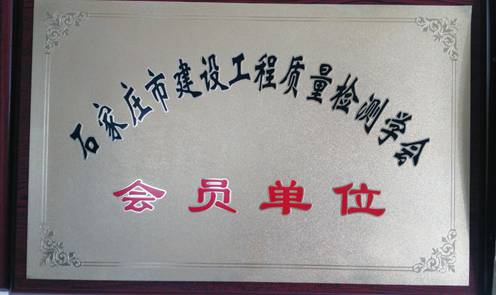 石家庄市建设工程质量检测学会
会员单位